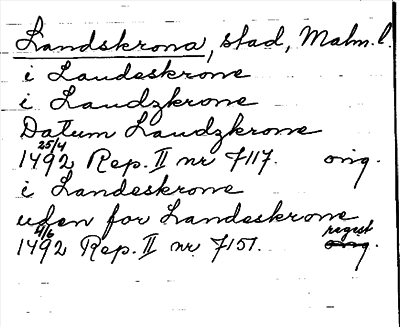 Landskrona, stad, Malm. l.
i Laudeskrone
i Laudzkrone
Datum Laudzkrone
25/4
1492 Rep. II nr 7117. orig.
i Landeskrone
uden for Landeskrone
4/6 regest
1492 Rep. II nr 7151. orig.